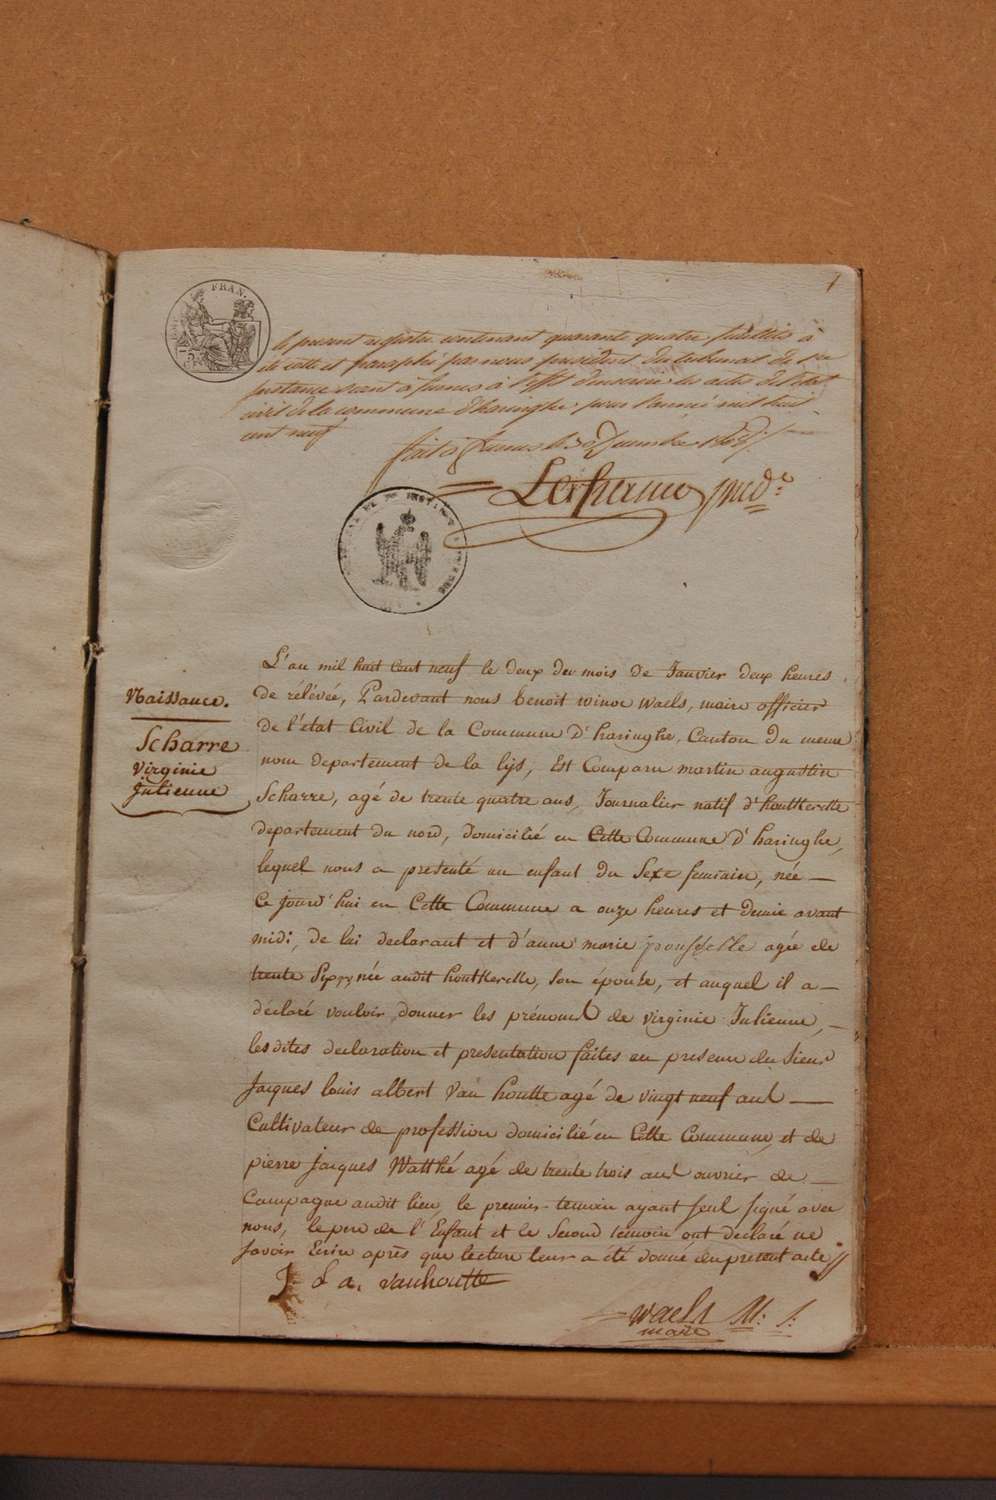 1
FRAN.
Le present registre contenant quarante quatre feuillets a
été cotté et paraphé par nous president du tribunal de 1re
instance seant à furnes à l'effet d'inscrire les actes de l'état
civil de la commune d'haringhe, pour l'année mil huit
cent neuf
fait à furnes le 30 Decembre 1808.
presdt
Naissance.
Scharre
Virginie
Julienne
L'an mil huit cent neuf le deux du mois de Janvier deux heures
de rélévée, Pardevant nous benoit winoc waels, maire officier
de l'état Civil de la Commune D'haringhe, Canton du meme
nom departement de la lys, Est Comparu martin augustin
Scharre, agé de trente quatre ans, Journalier natif d'houtkercke
departement du nord, domicilié en Cette Commune D'haringhe,
lequel nous a presenté un enfant du Sexe feminin, née —
Ce jourd'hui en Cette Commune a onze heures et demie avant
midi, de lui declarant et d'anne marie agée de
trente Sept, née audit houtkercke, son épouse, et auquel il a —
déclaré vouloir donner les prénoms de virginie Julienne, —
les dites declaration et presentation faites en presence du Sieur
Jacques louis albert Van houtte agé de vingt neuf ans —
Cultivateur de profession domicilié en Cette Commune, et de
pierre Jacques Watthé agé de trente trois ans ouvrier de —
Campagne audit lieu, le premier temoin ayant seul signé avec
nous, le pere de l'Enfant et le Second temoin ont déclaré ne
savoir Ecrire après que lecture leur a été donné du present acte //
J. L a. vanhoutte
waels M: S:
maire